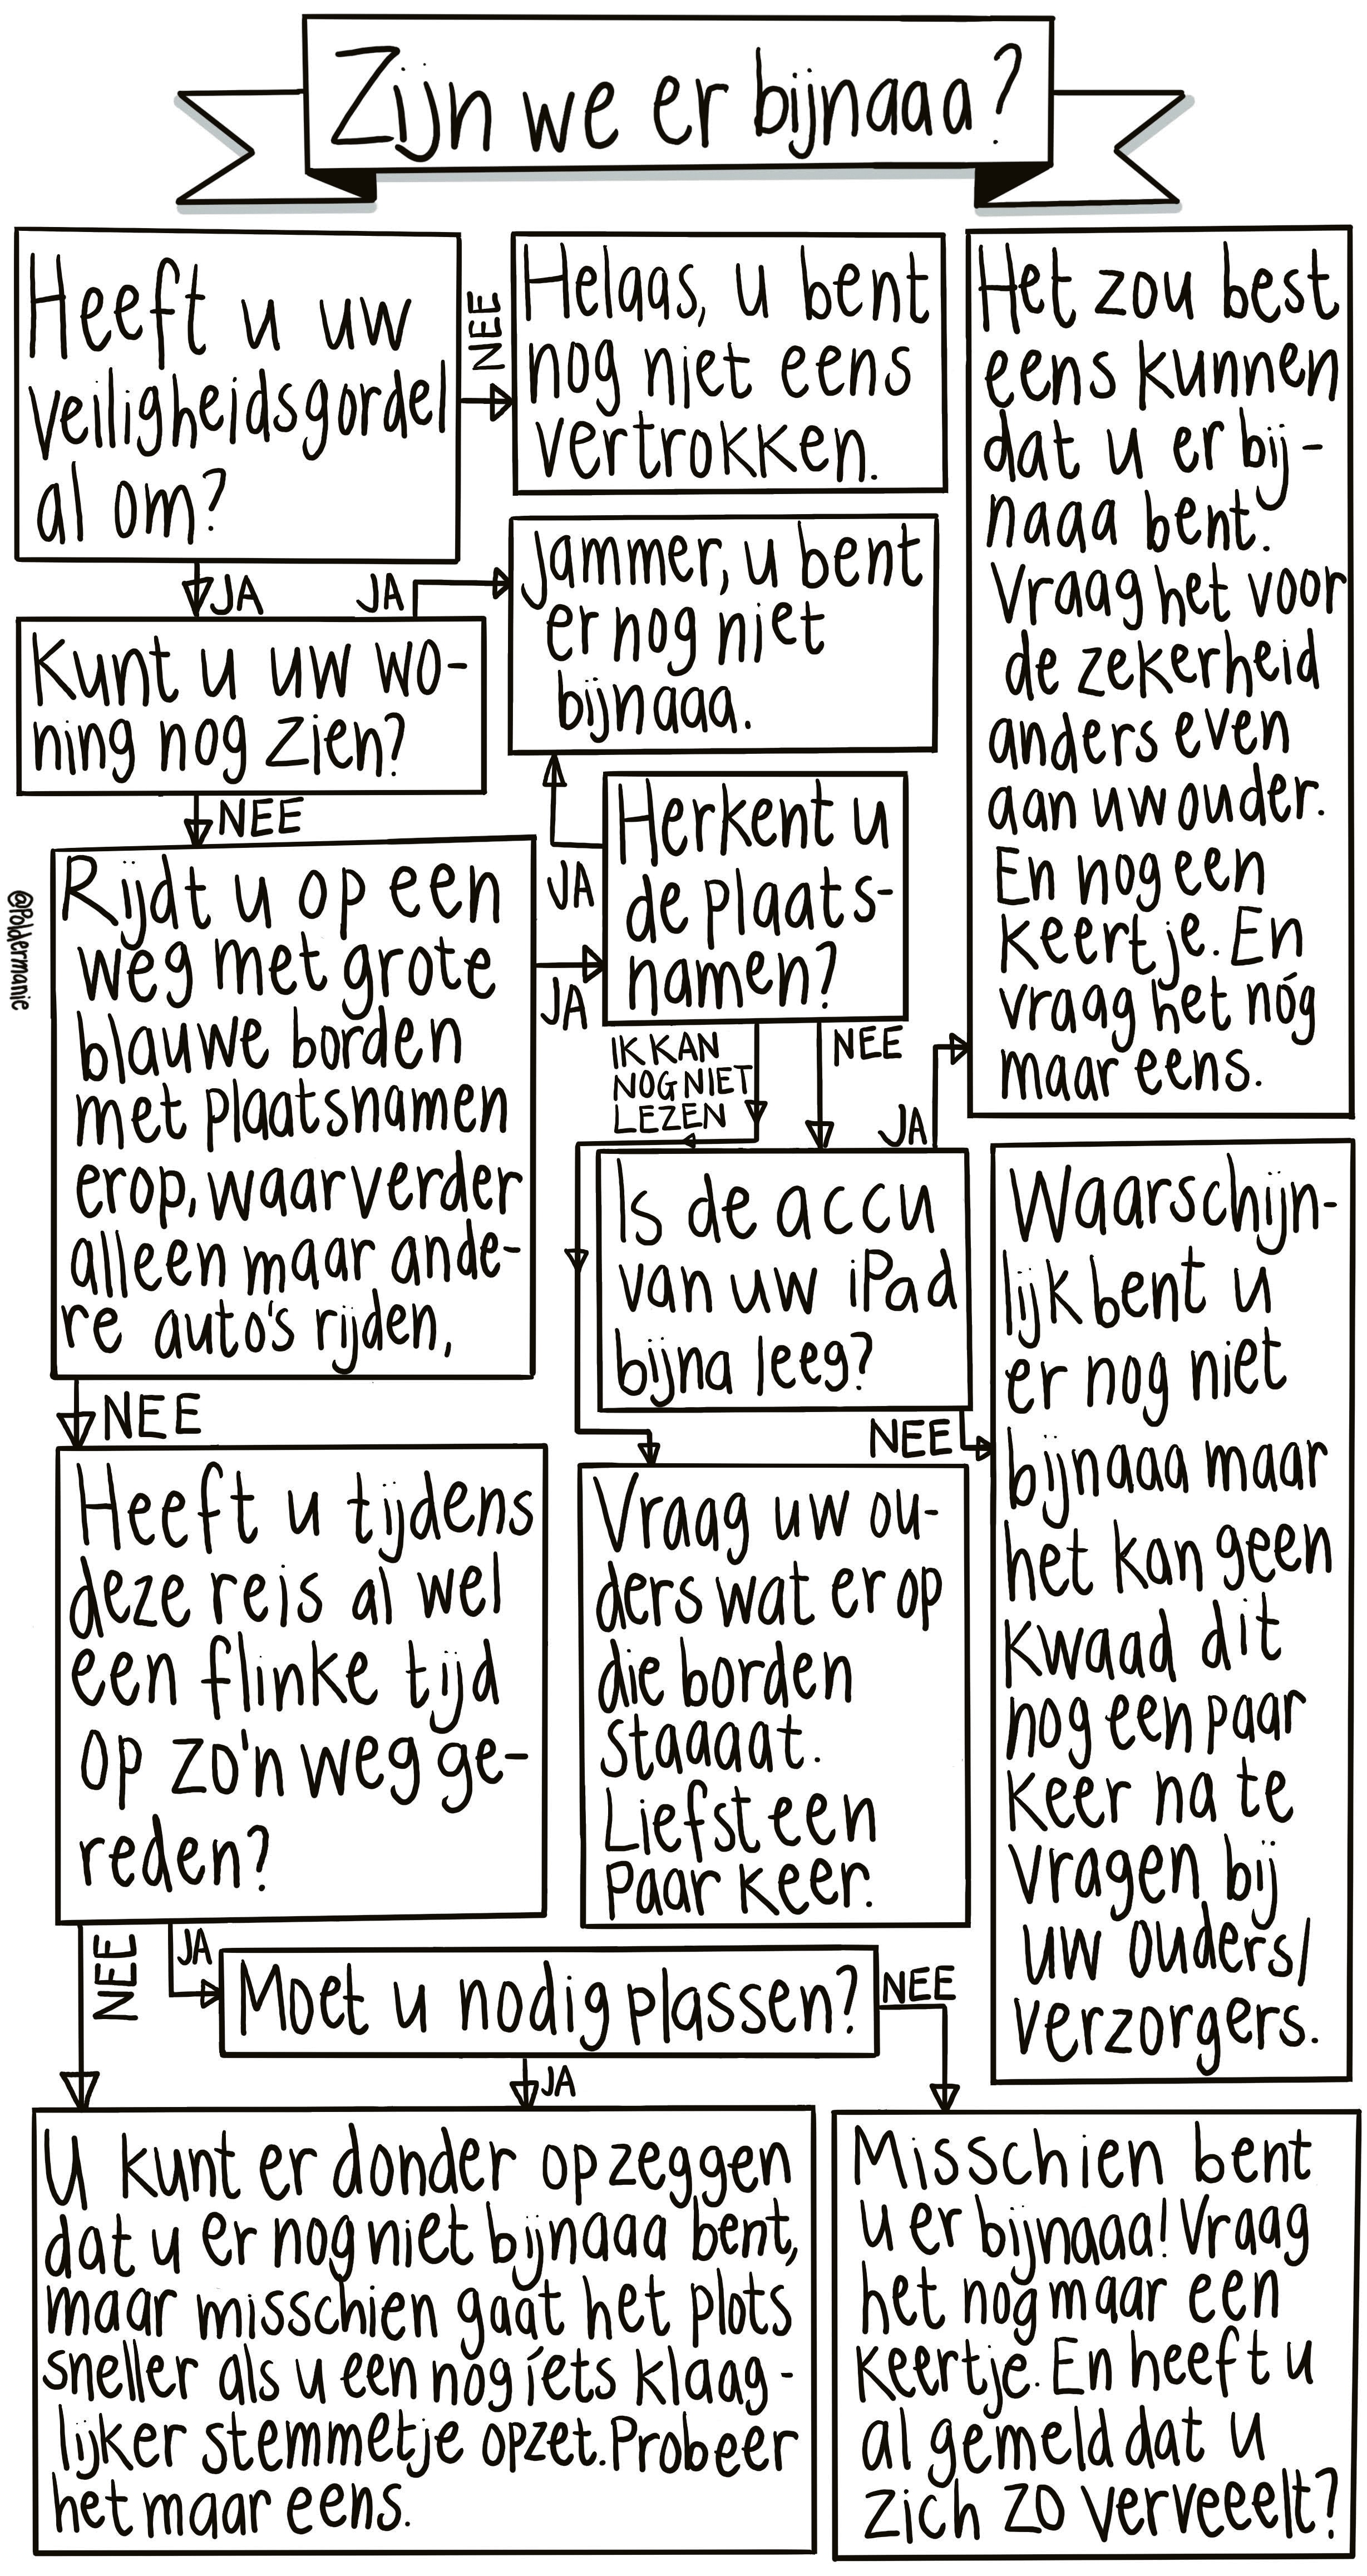 Zijn we er bijnaaa?
Heeft u uw
veiligheidsgordel
al om?
NEE
Helaas, u bent
nog niet eens
vertrokken.
JA
JA
Jammer, u bent
er nog niet
bijnaaa.
Kunt u uw wo-
ning nog zien?
NEE
JA
Herkent u
de plaats-
namen?
Rijdt u op een
weg met grote
blauwe borden
met plaatsnamen
erop, waar verder
alleen maar ande-
re auto's rijden,
JA
IK KAN
NOG NIET
LEZEN
NEE
JA
Het zou best
eens kunnen
dat u er bij-
naaa bent.
Vraag het voor
de zekerheid
anders even
aan uw ouder.
En nog een
keertje. En
vraag het nóg
maar eens.
Is de accu
van uw iPad
bijna leeg?
NEE
Waarschijn-
lijk bent u
er nog niet
bijnaaa maar
het kan geen
kwaad dit
nog een paar
keer na te
vragen bij
uw ouders/
verzorgers.
Vraag uw ou-
ders wat er op
die borden
staaaat.
Liefst een
paar keer.
NEE
Heeft u tijdens
deze reis al wel
een flinke tijd
op zo'n weg ge-
reden?
NEE
JA
Moet u nodig plassen?
NEE
JA
U kunt er donder op zeggen
dat u er nog niet bijnaaa bent,
maar misschien gaat het plots
sneller als u een nog íets klaag-
lijker stemmetje opzet. Probeer
het maar eens.
Misschien bent
u er bijnaaa! Vraag
het nog maar een
keertje. En heeft u
al gemeld dat u
zich zo verveeelt?
@Poldermanie